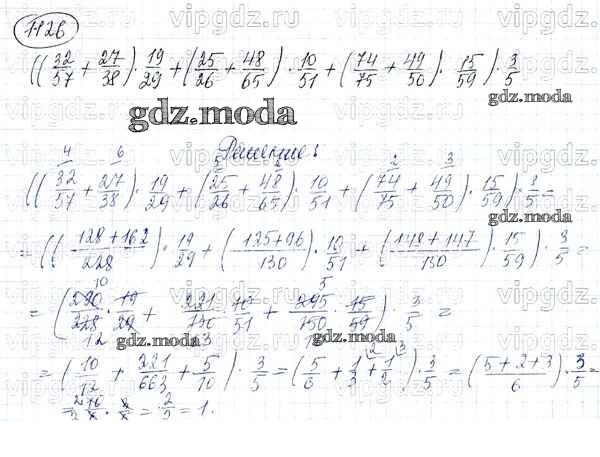 1126
((32/57 + 27/38) · 19/29 + (25/26 + 48/65) · 10/51 + (74/75 + 49/50) · 15/59) · 3/5
gdz.moda
Решение:
((32/57 + 27/38) · 19/29 + (25/26 + 48/65) · 10/51 + (74/75 + 49/50) · 15/59) · 3/5 =
gdz.moda
= ((128+162/228) · 19/29 + (125+96/130) · 10/51 + (148+147/130) · 15/59) · 3/5 =
= (290/228 · 19/29 + 221/130 · 10/51 + 295/150 · 15/59) · 3/5 =
gdz.moda gdz.moda
= (10/12 + 221/663 + 5/10) · 3/5 = (5/6 + 1/3 + 1/2) · 3/5 = (5+2+3/6) · 3/5 =
= 1.
vipgdz.